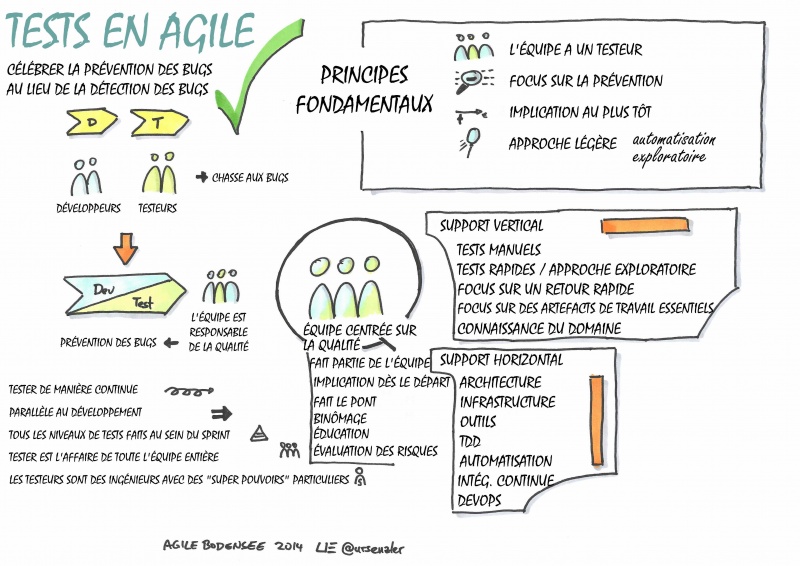 TESTS EN AGILE
CÉLÉBRER LA PRÉVENTION DES BUGS
AU LIEU DE LA DÉTECTION DES BUGS
D
T
DÉVELOPPEURS
TESTEURS
CHASSE AUX BUGS
Dev
Test
L'ÉQUIPE EST
RESPONSABLE
DE LA QUALITÉ
PRÉVENTION DES BUGS
TESTER DE MANIÈRE CONTINUE
PARALLÈLE AU DÉVELOPPEMENT
TOUS LES NIVEAUX DE TESTS FAITS AU SEIN DU SPRINT
TESTER EST L'AFFAIRE DE TOUTE L'ÉQUIPE ENTIÈRE
LES TESTEURS SONT DES INGÉNIEURS AVEC DES "SUPER POUVOIRS" PARTICULIERS
PRINCIPES
FONDAMENTAUX
L'ÉQUIPE A UN TESTEUR
FOCUS SUR LA PRÉVENTION
IMPLICATION AU PLUS TÔT
APPROCHE LÉGÈRE
automatisation
exploratoire
ÉQUIPE CENTRÉE SUR
LA QUALITÉ
FAIT PARTIE DE L'ÉQUIPE
IMPLICATION DÈS LE DÉPART
FAIT LE PONT
BINÔMAGE
ÉDUCATION
ÉVALUATION DES RISQUES
SUPPORT VERTICAL
TESTS MANUELS
TESTS RAPIDES / APPROCHE EXPLORATOIRE
FOCUS SUR UN RETOUR RAPIDE
FOCUS SUR DES ARTEFACTS DE TRAVAIL ESSENTIELS
CONNAISSANCE DU DOMAINE
SUPPORT HORIZONTAL
ARCHITECTURE
INFRASTRUCTURE
OUTILS
TDD
AUTOMATISATION
INTÉG. CONTINUE
DEVOPS
AGILE BODENSEE 2014 LIE @ursenzler